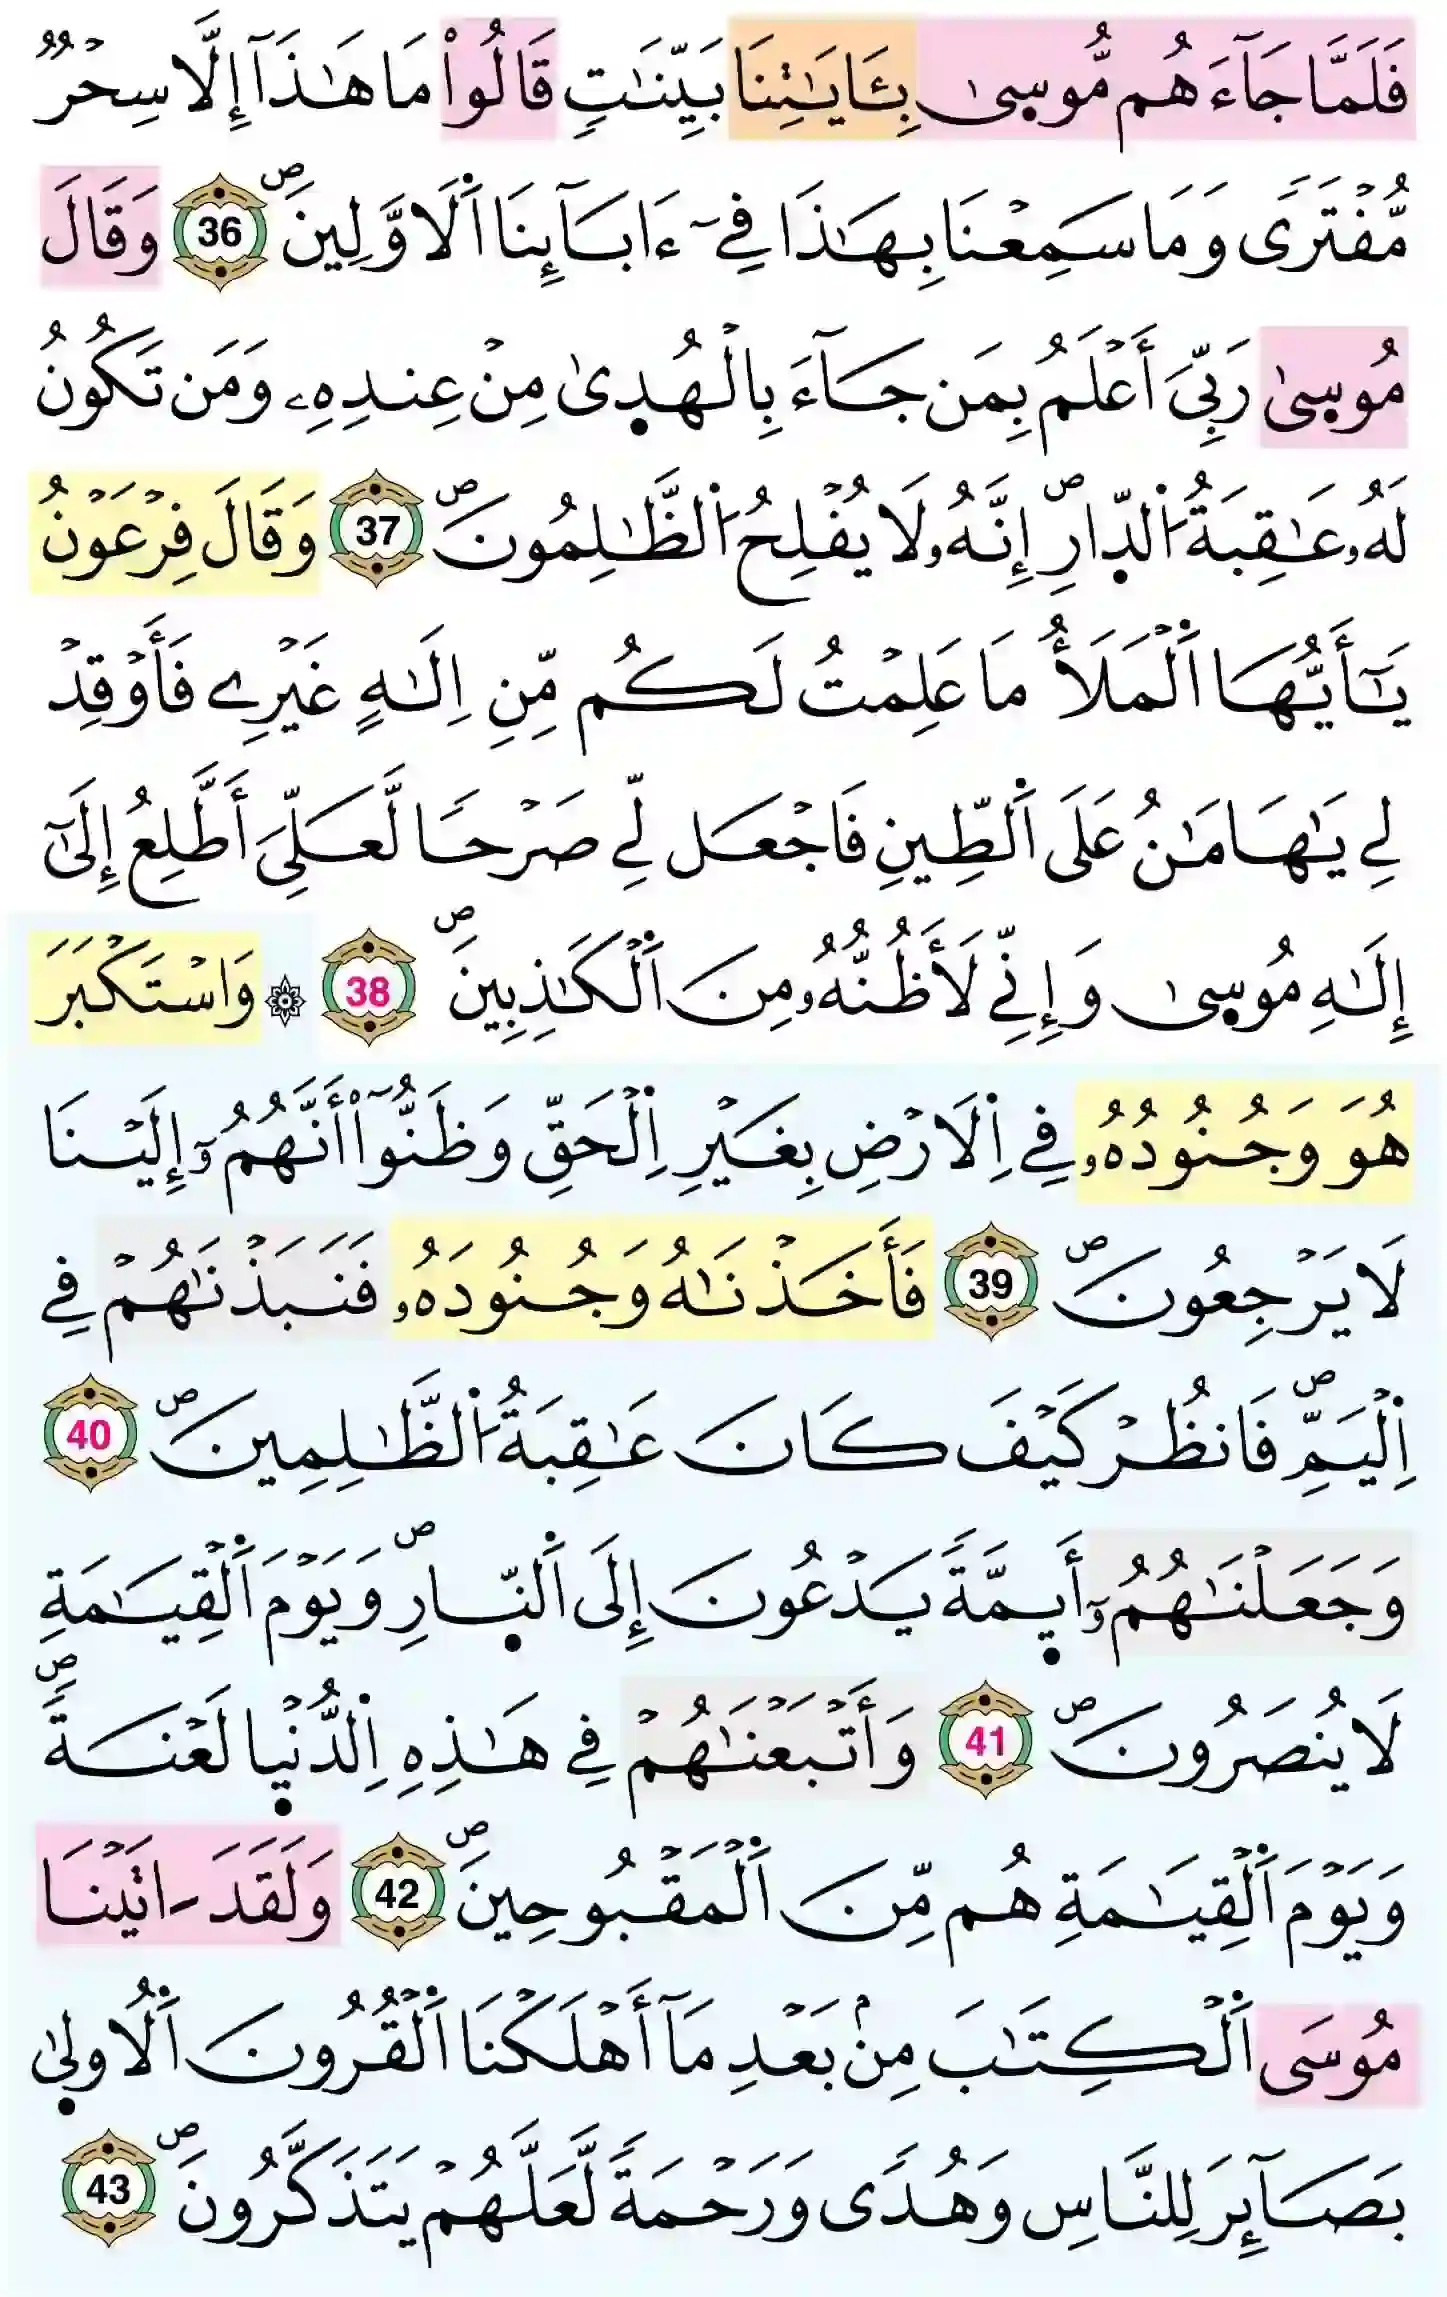 فَلَمَّا جَآءَهُم مُّوسٜىٰ بِـَٔايَٰتِنَا بَيِّنَٰتٖ قَالُواْ مَا هَٰذَآ إِلَّا سِحْرٞ
مُّفْتَرٗى وَمَا سَمِعْنَا بِهَٰذَا فِےٓ ءَابَآئِنَا اَ۬لَاوَّلِينَۖ 36 وَقَالَ
مُوسٜىٰ رَبِّيَ أَعْلَمُ بِمَن جَآءَ بِالْهُدٜىٰ مِنْ عِندِهِۦ وَمَن تَكُونُ
لَهُۥ عَٰقِبَةُ اُ۬لدّ۪ارِۖ إِنَّهُۥ لَا يُفْلِحُ اُ۬لظَّٰلِمُونَۖ 37 وَقَالَ فِرْعَوْنُ
يَٰٓأَيُّهَا اَ۬لْمَلَأُ مَا عَلِمْتُ لَكُم مِّنِ اِلَٰهٍ غَيْرِے فَأَوْقِدْ
لِے يَٰهَٰمَٰنُ عَلَى اَ۬لطِّينِ فَاجْعَل لِّے صَرْحاٗ لَّعَلِّيَ أَطَّلِعُ إِلَىٰٓ
إِلَٰهِ مُوسٜىٰ وَإِنِّے لَأَظُنُّهُۥ مِنَ اَ۬لْكَٰذِبِينَۖ 38 ۞ وَاسْتَكْبَرَ
هُوَ وَجُنُودُهُۥ فِے اِ۬لَارْضِ بِغَيْرِ اِ۬لْحَقِّ وَظَنُّوٓاْ أَنَّهُمُۥٓ إِلَيْنَا
لَا يَرْجِعُونَۖ 39 فَأَخَذْنَٰهُ وَجُنُودَهُۥ فَنَبَذْنَٰهُمْ فِے
اِ۬لْيَمِّۖ فَانظُرْ كَيْفَ كَانَ عَٰقِبَةُ اُ۬لظَّٰلِمِينَۖ 40
وَجَعَلْنَٰهُمُۥٓ أَي۪مَّةٗ يَدْعُونَ إِلَى اَ۬لنّ۪ارِۖ وَيَوْمَ اَ۬لْقِيَٰمَةِ
لَا يُنصَرُونَۖ 41 وَأَتْبَعْنَٰهُمْ فِے هَٰذِهِ اِ۬لدُّنْي۪ا لَعْنَةٗۖ
وَيَوْمَ اَ۬لْقِيَٰمَةِ هُم مِّنَ اَ۬لْمَقْبُوحِينَۖ 42 وَلَقَدَ اٰتَيْنَا
مُوسَى اَ۬لْكِتَٰبَ مِنۢ بَعْدِ مَآ أَهْلَكْنَا اَ۬لْقُرُونَ اَ۬لُاولٜىٰ
بَصَآئِرَ لِلنَّاسِ وَهُدٗى وَرَحْمَةٗ لَّعَلَّهُمْ يَتَذَكَّرُونَۖ 43